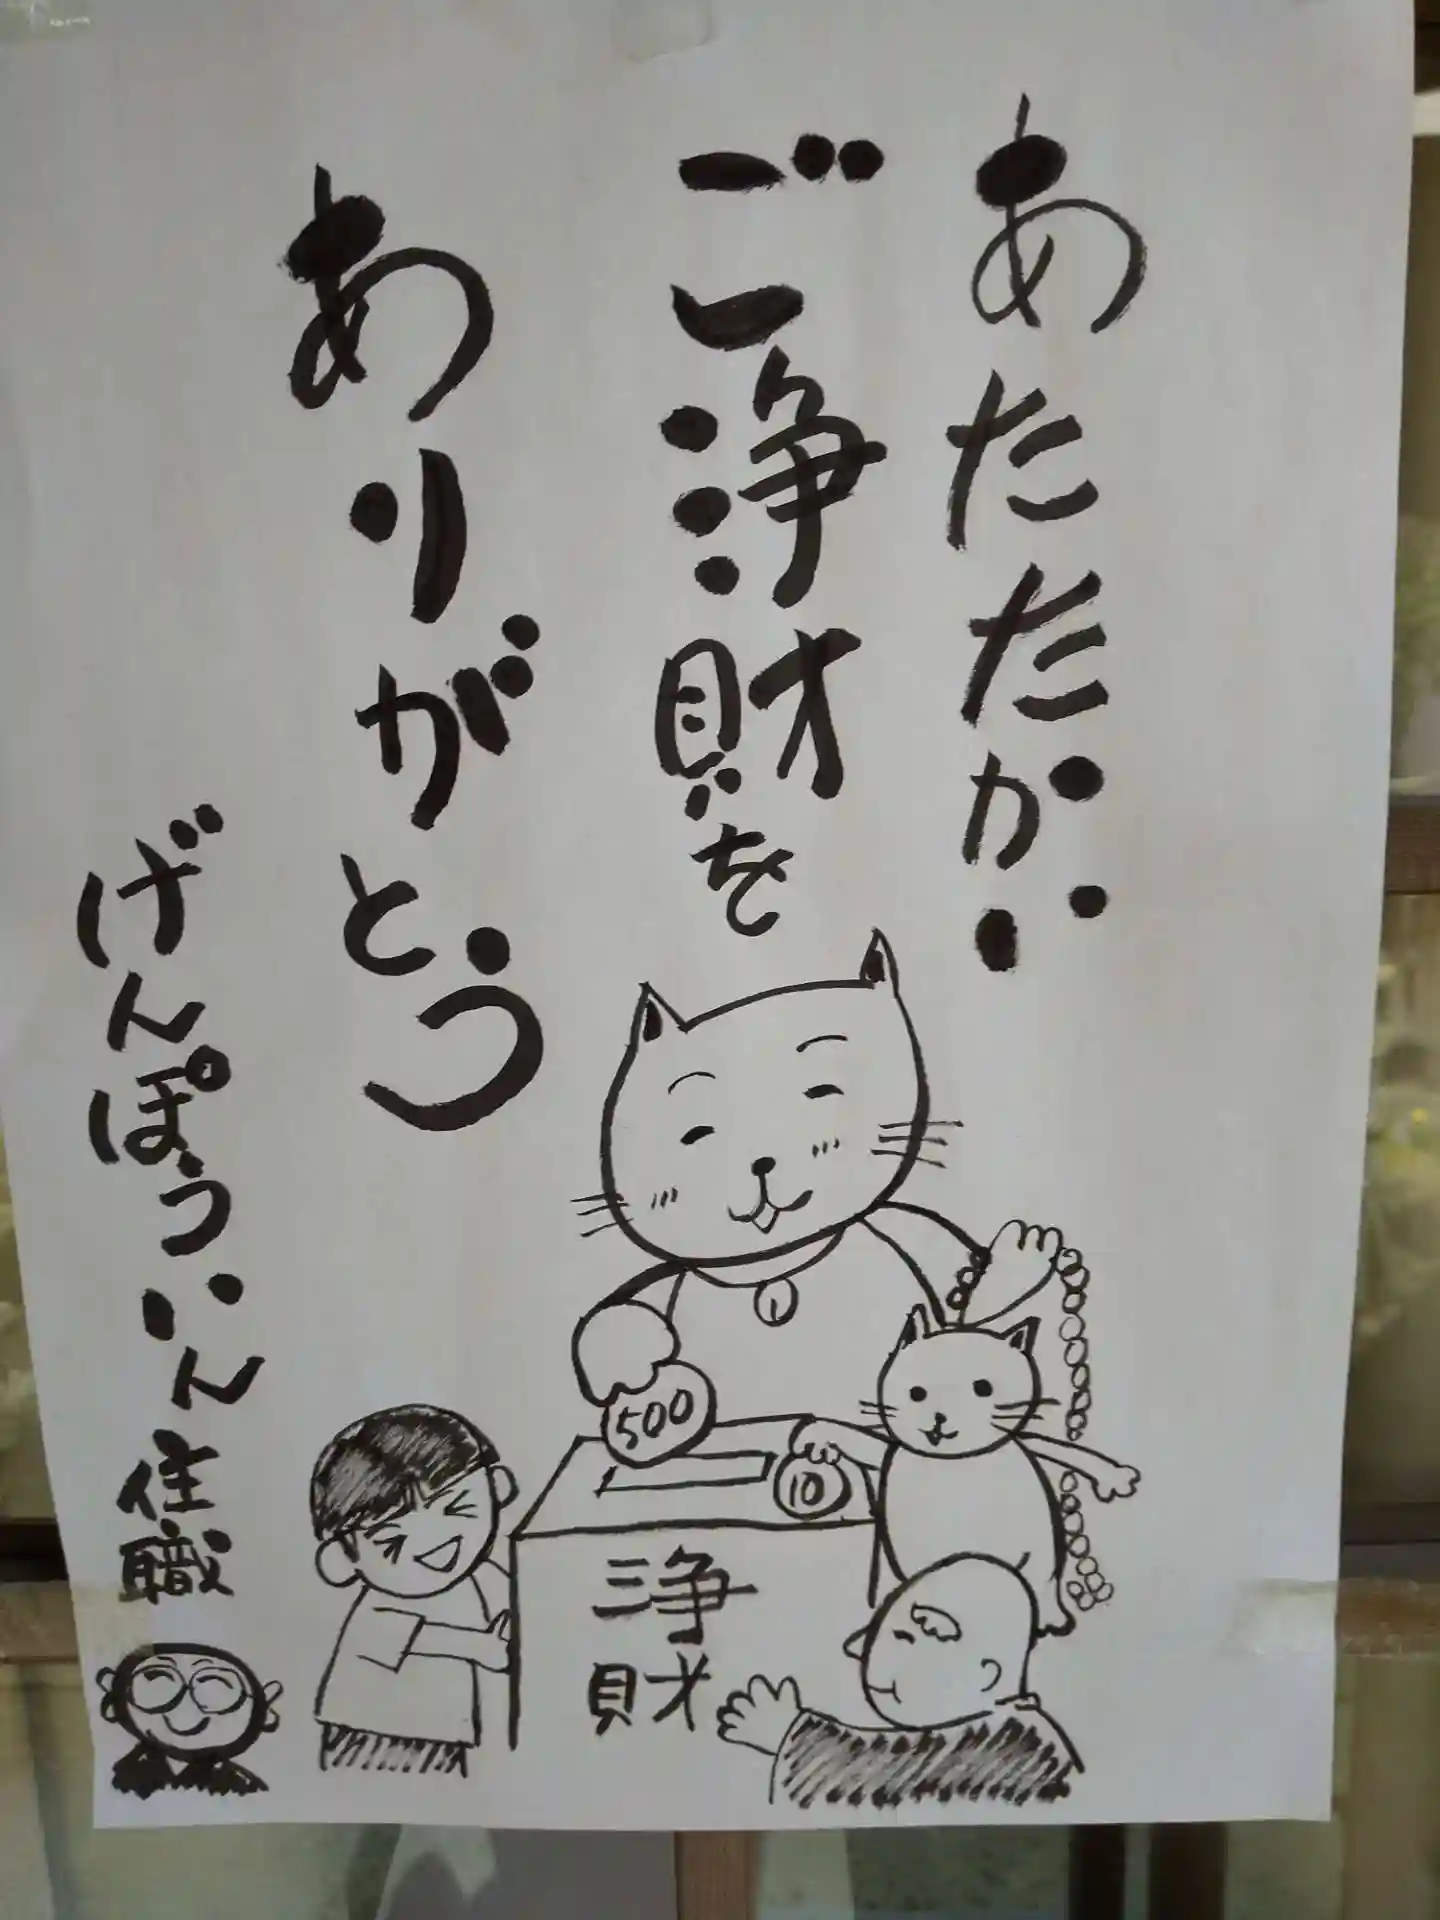 あたたかい
ご浄財を
ありがとう
げんぽういん住職
500
10
浄
財